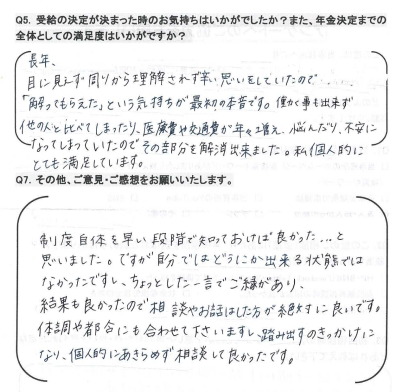 Q5. 受給の決定が決まった時のお気持ちはいかがでしたか？また、年金決定までの
全体としての満足度はいかがですか？
長年、
目に見えず周りから理解されず辛い思いをしていたので.....
「解ってもらえた」という気持ちが最初の本音です。働く事も出来ず
他の人と比べてしまったり、医療費や交通費が年々増え、悩んだり、不安に
なってしまっていたのでその部分を解消出来ました。私個人的に
とても満足しています。
Q7. その他、ご意見・ご感想をお願いいたします。
制度自体を早い段階で知っておけば良かった...と
思いました。ですが自分ではどうにか出来る状態では
なかったですし、ちょっとした一言でご縁があり、
結果も良かったので相談やお話はした方が絶対に良いです。
体調や都合にも合わせて下さいますし、踏み出すのきっかけに
なり、個人的にあきらめず相談して良かったです。